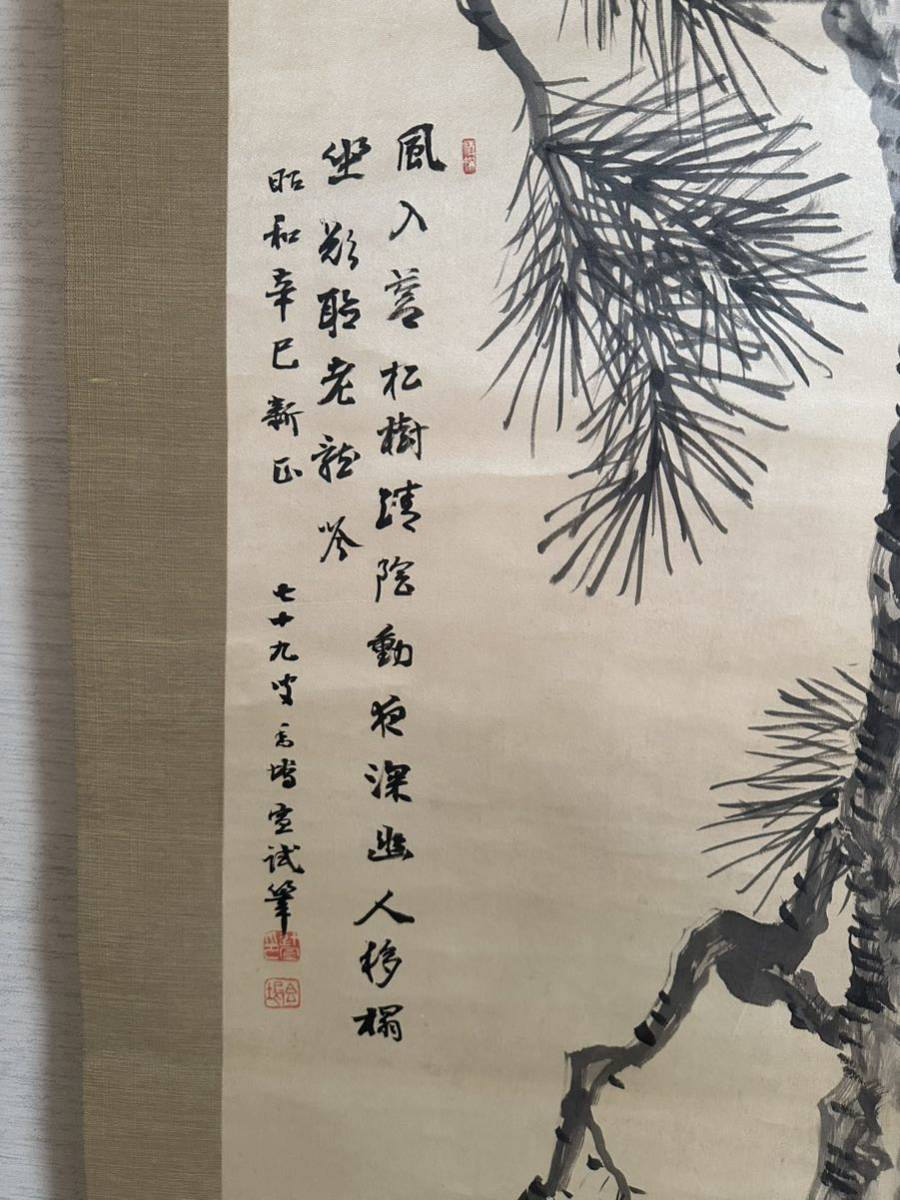 風入蒼松樹蹟陰動夜深幽人移榻
坐欲聴老龍吟
昭和辛巳新正
七十九叟 試筆